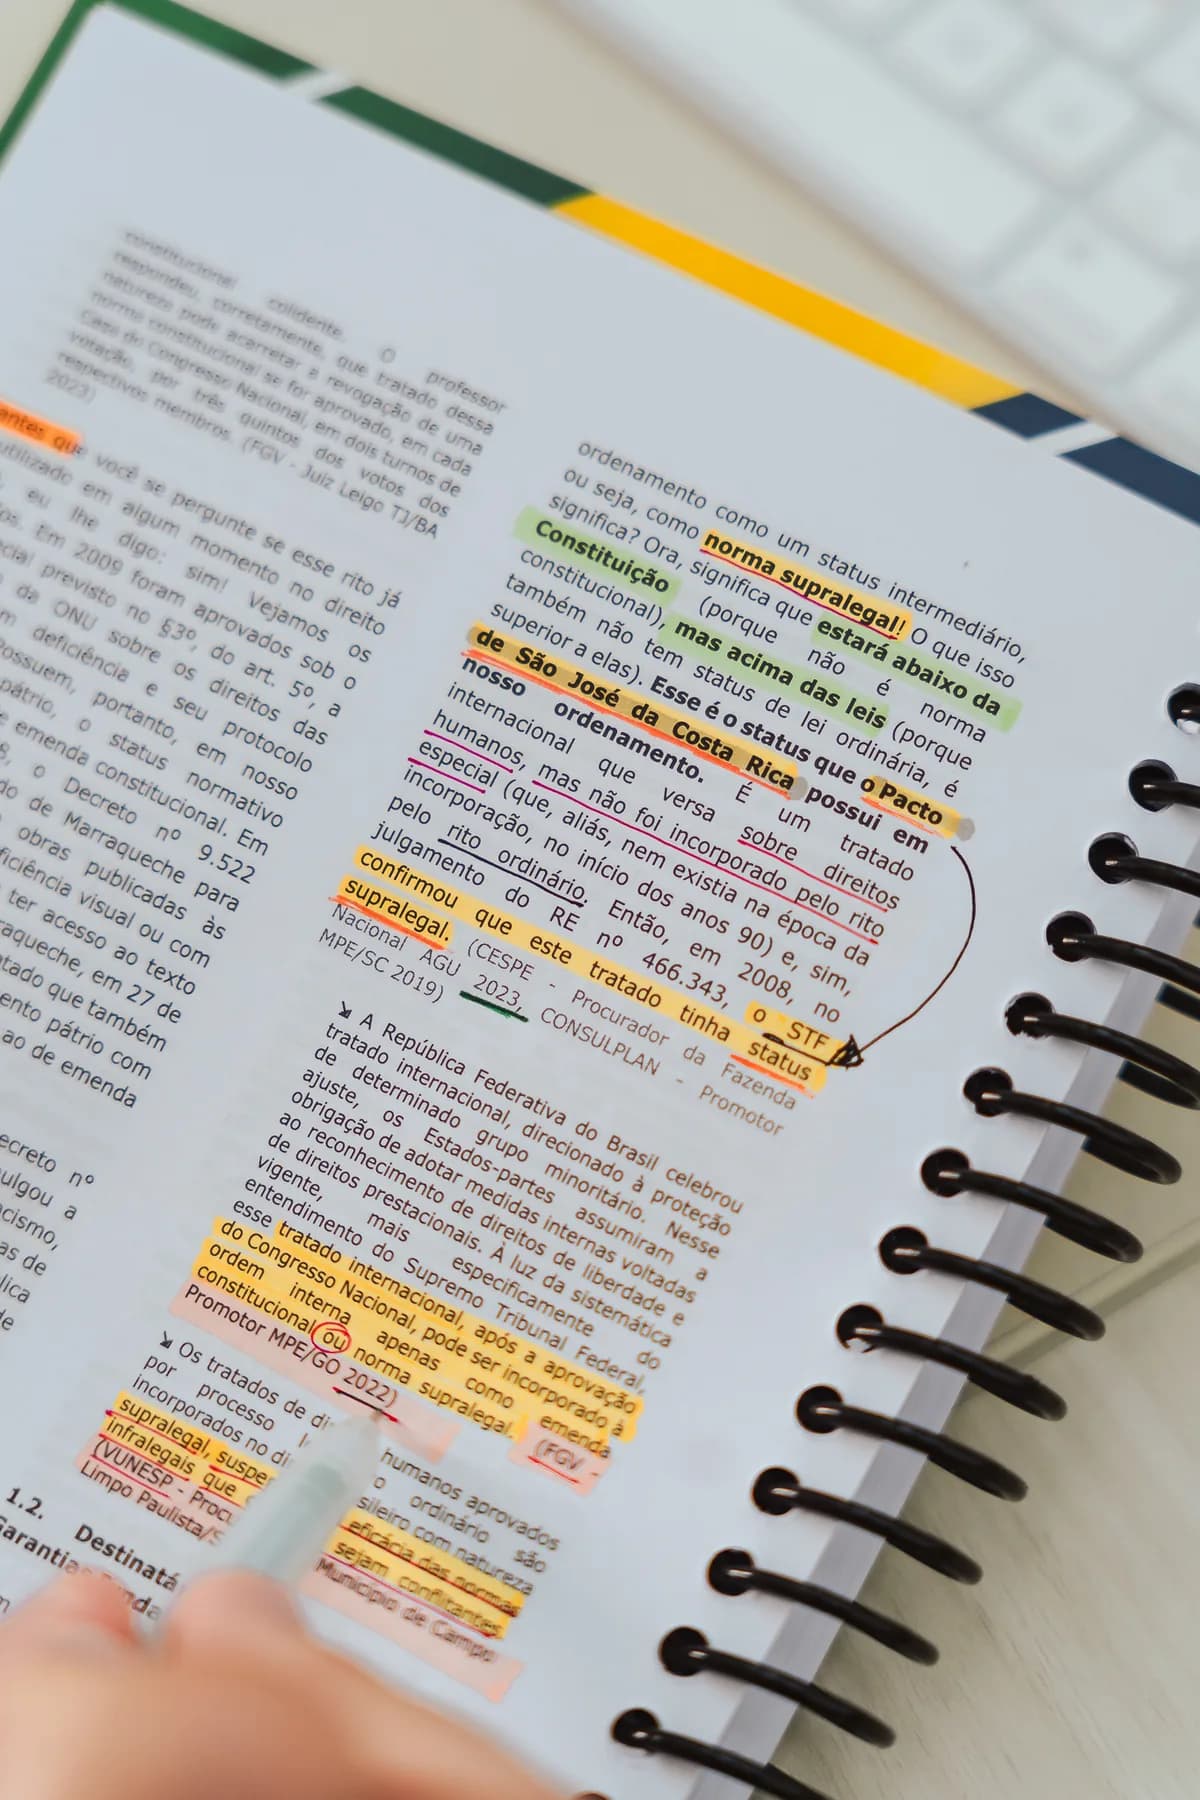 constitucional colidente. O professor
respondeu, corretamente, que tratado dessa
natureza pode acarretar a revogação de uma
norma constitucional se for aprovado, em cada
Casa do Congresso Nacional, em dois turnos de
votação, por três quintos dos votos dos
respectivos membros. (FGV - Juiz Leigo TJ/BA
2023)
antes que você se pergunte se esse rito já
utilizado em algum momento no direito
eu lhe digo: sim! Vejamos os
Em 2009 foram aprovados sob o
previsto no §3º, do art. 5º, a
da ONU sobre os direitos das
deficiência e seu protocolo
Possuem, portanto, em nosso
pátrio, o status normativo
emenda constitucional. Em
o Decreto nº 9.522
de Marraqueche para
obras publicadas às
visual ou com
ter acesso ao texto
em 27 de
que também
pátrio com
ao de emenda
nº
a
de
ordenamento como um status intermediário,
ou seja, como norma supralegal! O que isso
significa? Ora, significa que estará abaixo da
Constituição (porque não é norma
constitucional), mas acima das leis (porque
também não tem status de lei ordinária, é
superior a elas). Esse é o status que o Pacto
de São José da Costa Rica possui em
nosso ordenamento. É um tratado
internacional que versa sobre direitos
humanos, mas não foi incorporado pelo rito
especial (que, aliás, nem existia na época da
incorporação, no início dos anos 90) e, sim,
pelo rito ordinário. Então, em 2008, no
julgamento do RE nº 466.343, o STF
confirmou que este tratado tinha status
supralegal. (CESPE - Procurador da Fazenda
Nacional AGU 2023, CONSULPLAN - Promotor
MPE/SC 2019)
↘ A República Federativa do Brasil celebrou
tratado internacional, direcionado à proteção
de determinado grupo minoritário. Nesse
ajuste, os Estados-partes assumiram a
obrigação de adotar medidas internas voltadas
ao reconhecimento de direitos de liberdade e
de direitos prestacionais. À luz da sistemática
vigente, mais especificamente do
entendimento do Supremo Tribunal Federal,
esse tratado internacional, após a aprovação
do Congresso Nacional, pode ser incorporado à
ordem interna apenas como emenda
constitucional ou norma supralegal. (FGV -
Promotor MPE/GO 2022)
↘ Os tratados de humanos aprovados
por processo ordinário são
incorporados no com natureza
supralegal, eficácia das normas
infralegais que sejam conflitantes.
(VUNESP - Município de Campo
Limpo
1.2.